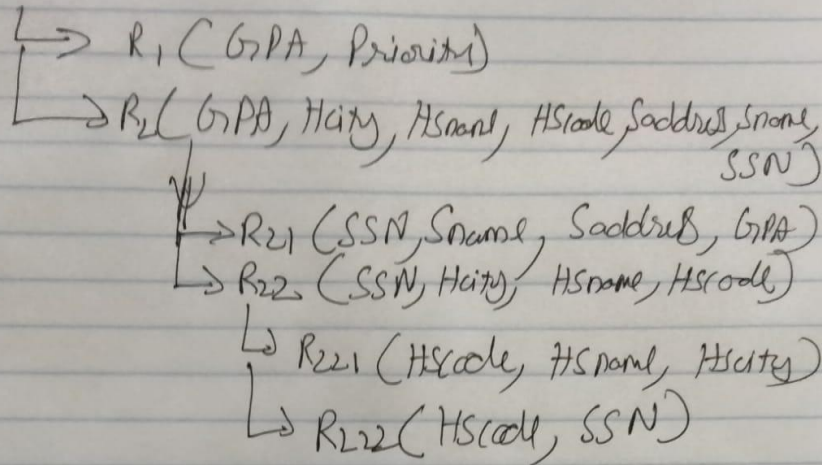 R1 ( GPA, Priority)
R2 ( GPA, Hcity, Hsname, HScode, Saddress, Sname,
SSN)
R21 (SSN, Sname, Saddress, GPA)
R22 (SSN, Hcity, HSname, HScode)
R221 (HScode, HSname, Hscity)
R222 (HScode, SSN)